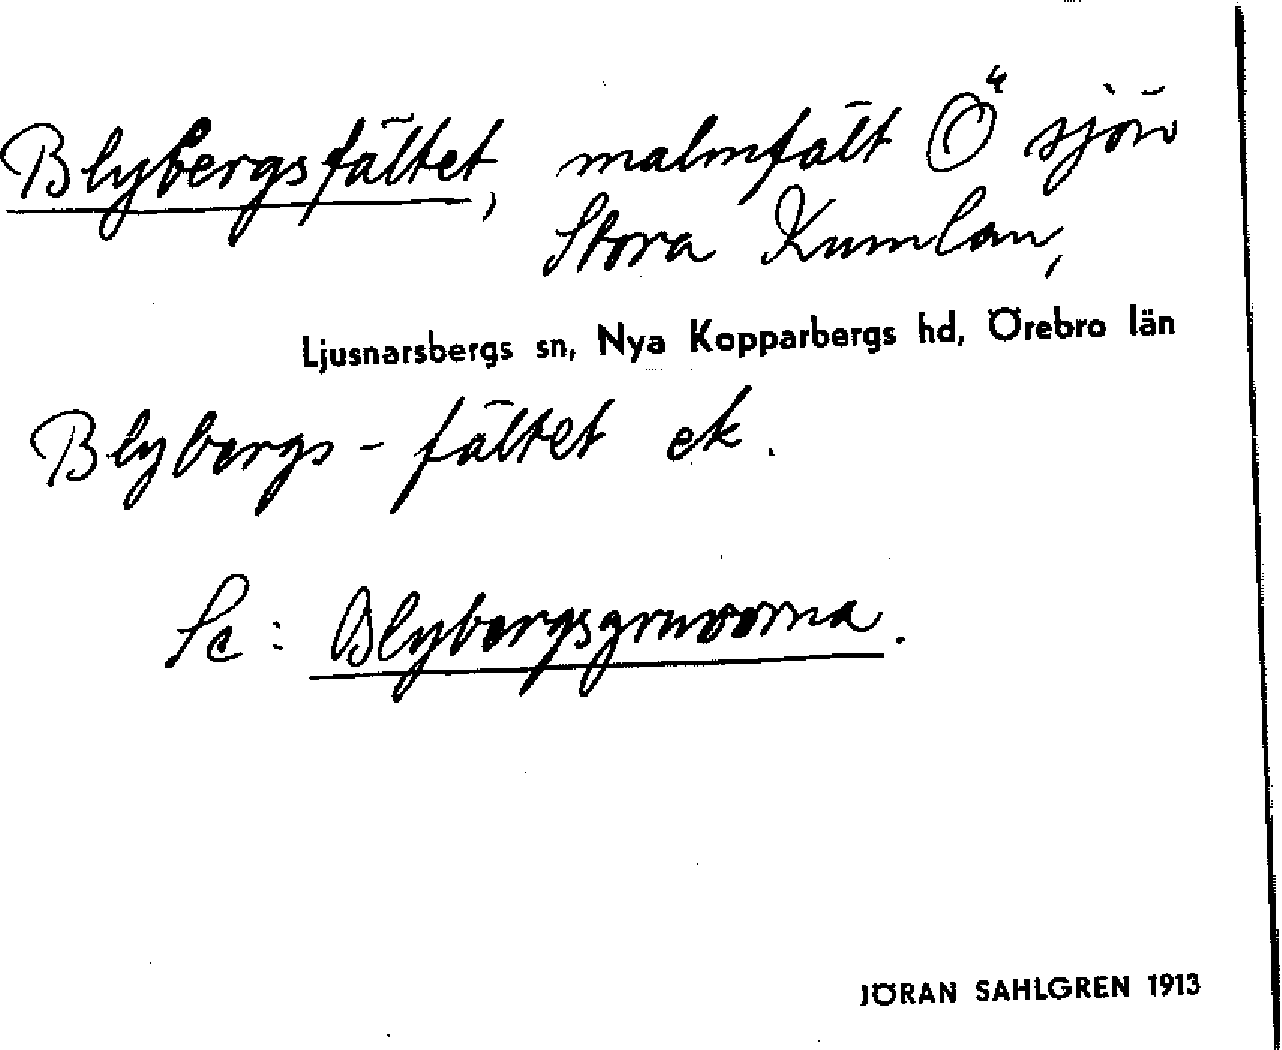 Blybergsfältet, malmfält Ö sjön
Stora Kumlan,
Ljusnarsbergs sn, Nya Kopparbergs hd, Örebro län
Blybergs-fältet ek.
Se: Blybergsgruvorna.
JÖRAN SAHLGREN 1913